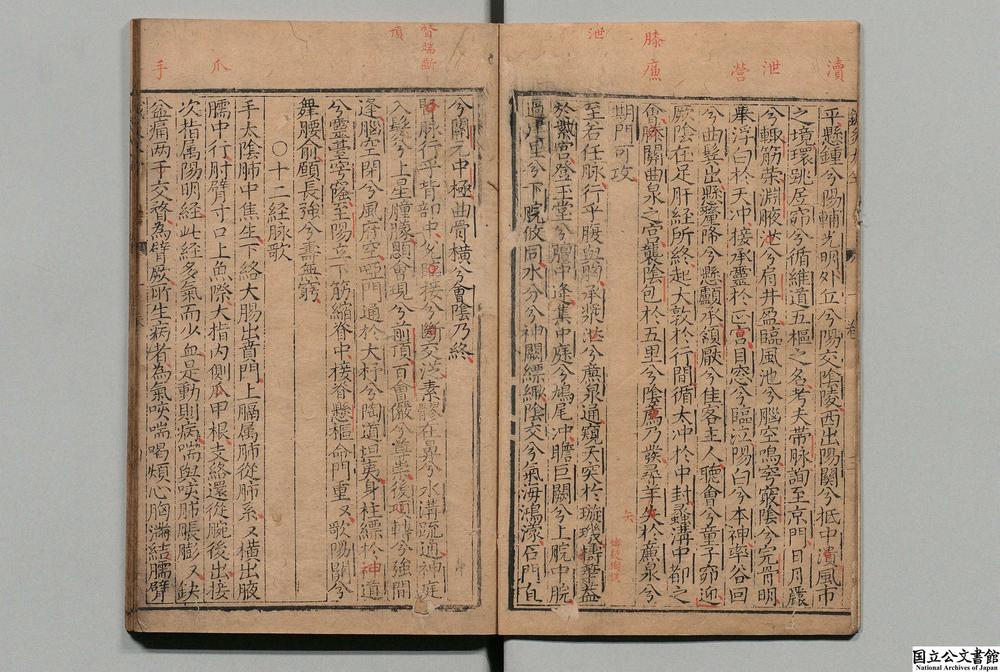 瀆
泄
營
膝
廉
泄
平懸鍾兮陽輔光明外丘兮陽交陰陵西出陽關兮抵中瀆風市
之境環跳居窌兮循維道五樞之名考夫帶脉詢至京門日月嚴
兮輙筋榮淵腋泄兮肩井盈臨風池兮腦空鳴竅陰兮完骨明
舉浮白於天冲接承靈於正宮目窓兮臨泣陽白兮本神率谷回
兮曲髩出懸釐降兮懸顱承頷厭兮佳客主人聽會兮童子窌迎
厥陰在足肝経所終起大敦於行間循太冲於中封蠡溝中都之
會膝關曲泉之宮襲陰包於五里兮陰廉乃發尋羊矢於兮
期門可攻
至若任脉行乎腹與胸承漿泄兮廉泉通窺天突於璇璣擣華蓋
於紫宮登玉堂兮膻中逢集中庭兮鳩尾冲瞻巨闕兮上脘中脘
過建里兮下脘攸同水分兮神闕縹緲陰交兮氣海鴻濛石門直
矢
督端斷
頂
爪
手
兮關元中極曲骨横兮會陰乃終
督脉行乎背部中兊端接兮斷交從素髎在鼻兮水溝疏通神庭
入髮兮上星瞳朦顖會現兮前頂百會儼兮尊崇後頂轉兮強間
逢腦空閉兮風府空啞門通於大杼兮陶道坦夷身柱縹於神道
兮靈臺穹窿至陽立下筋縮脊中接脊懸樞命門重又歌陽關兮
舞腰俞願長強兮壽無窮
〇十二経脉歌
手太陰肺中焦生下絡大腸出賁門上膈属肺從肺系又横出腋
臑中行肘臂寸口上魚際大指内側爪甲根支絡還從腕後出接
次指属陽明経此経多氣而少血是動則病喘與咳肺脹膨又缺
盆痛两手交瞀為臂厥所生病者為氣咳喘喝煩心胸滿結臑臂
国立公文書館
National Archives of Japan